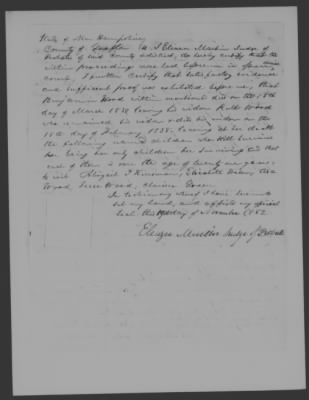 State of New Hampshire
County of Grafton SS I Eleazer Martin Judge of
Probate of said County aforesaid, do hereby certify that the
within proceedings were had before me in open
court, I further certify that satisfactory evidence
and sufficient proof was exhibited before me, that
Benjamin Wood within mentioned died on the 18th
day of March 1838 leaving his widow Ruth Wood
who remained his widow & died his widow on the
15th day of February 1838, leaving at her death
the following named children who still survive
her being her only children her surviving and that
each of them is over the age of twenty one years
to wit Abigail Elizabeth
Wood, Wood,
In testimony whereof I have hereunto
set my hand, and affixed my official
seal this day of November 1852
Eleazer Martin Judge of Probate